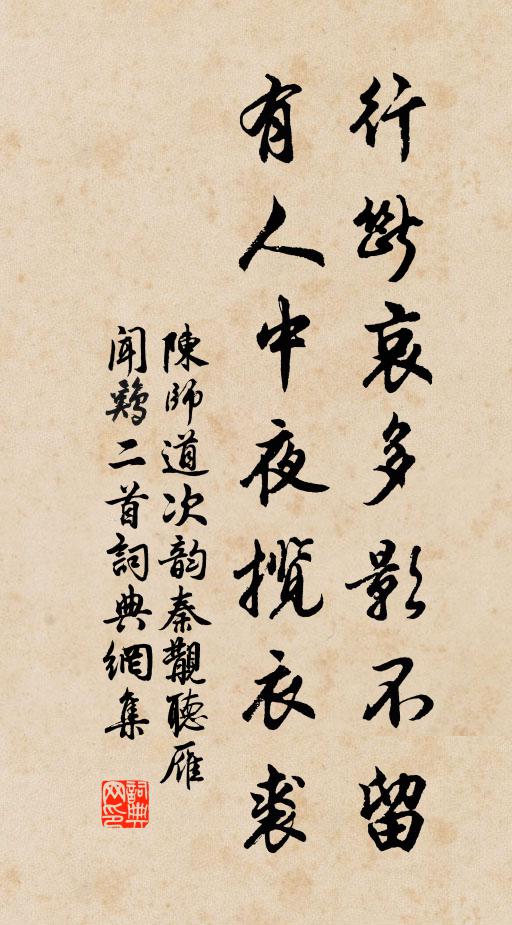 行斷哀多影不留
有人中夜攬衣裘
陳師道次韵秦觀聽雁
聞鷄二首詞典網集
詞典網印